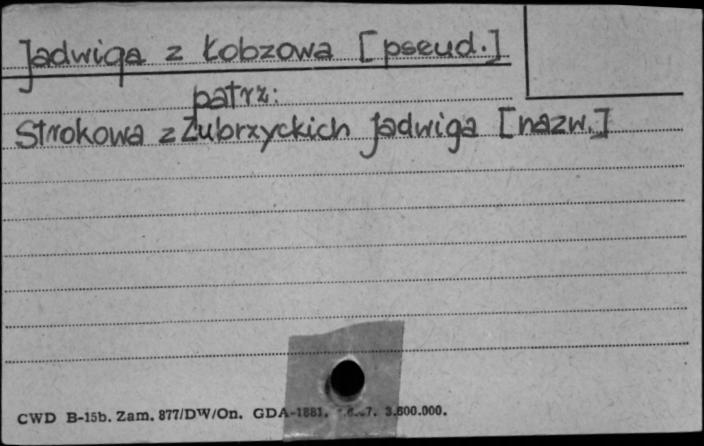 Jadwiga z Łobzowa [pseud.]
patrz:
Strokowa z Zubrzyckich Jadwiga [nazw.]
CWD B-15b. Zam. 877/DW/On. GDA-1881. 3.600.000.